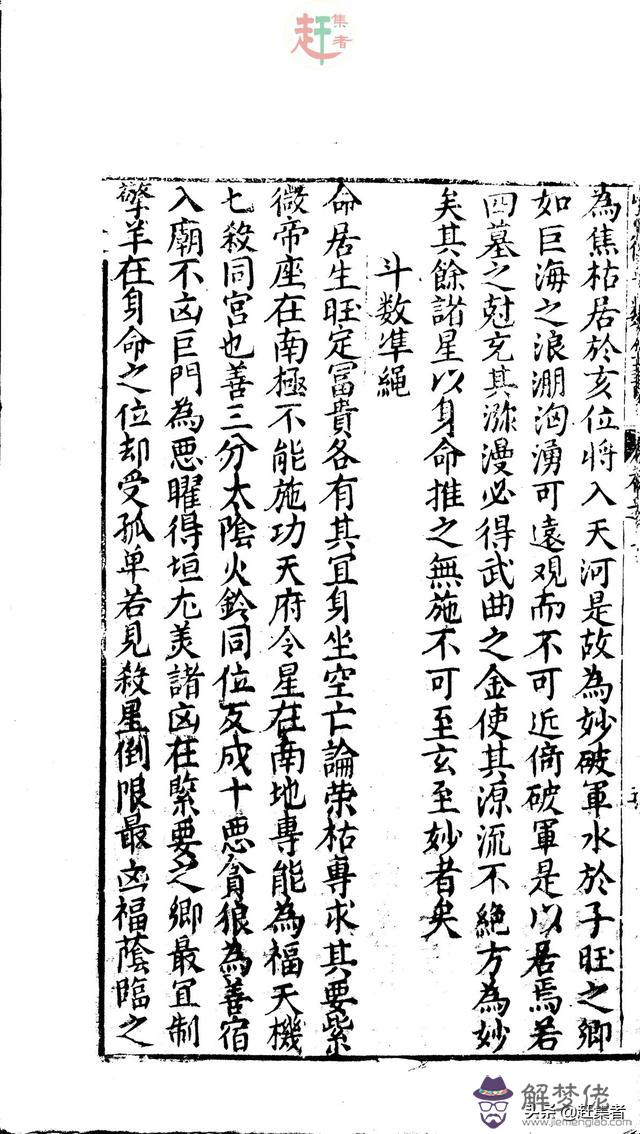 赶集者
為焦枯居於亥位將入天河是故為妙破軍水於子旺之鄉
如巨海之浪淜洶湧可遠观而不可近倚破軍是以居焉若
四墓之尅充其瀰漫必得武曲之金使其源流不絕方為妙
矣其餘諸星以身命推之無施不可至玄至妙者矣
斗数準繩
命居生旺定冨貴各有其冝身坐空亡論荣枯專求其要紫
微帝座在南極不能施功天府令星在南地專能為福天機
七殺同宮也善三分太陰火鈴同位反成十悪貪狼為善宿
入廟不凶巨門為悪曜得垣尤美諸凶在緊要之鄉最冝制
擎羊在身命之位却受孤单若見殺星倒限最凶福蔭臨之
解梦佬
www.jiemenglao.com
头条@赶集者